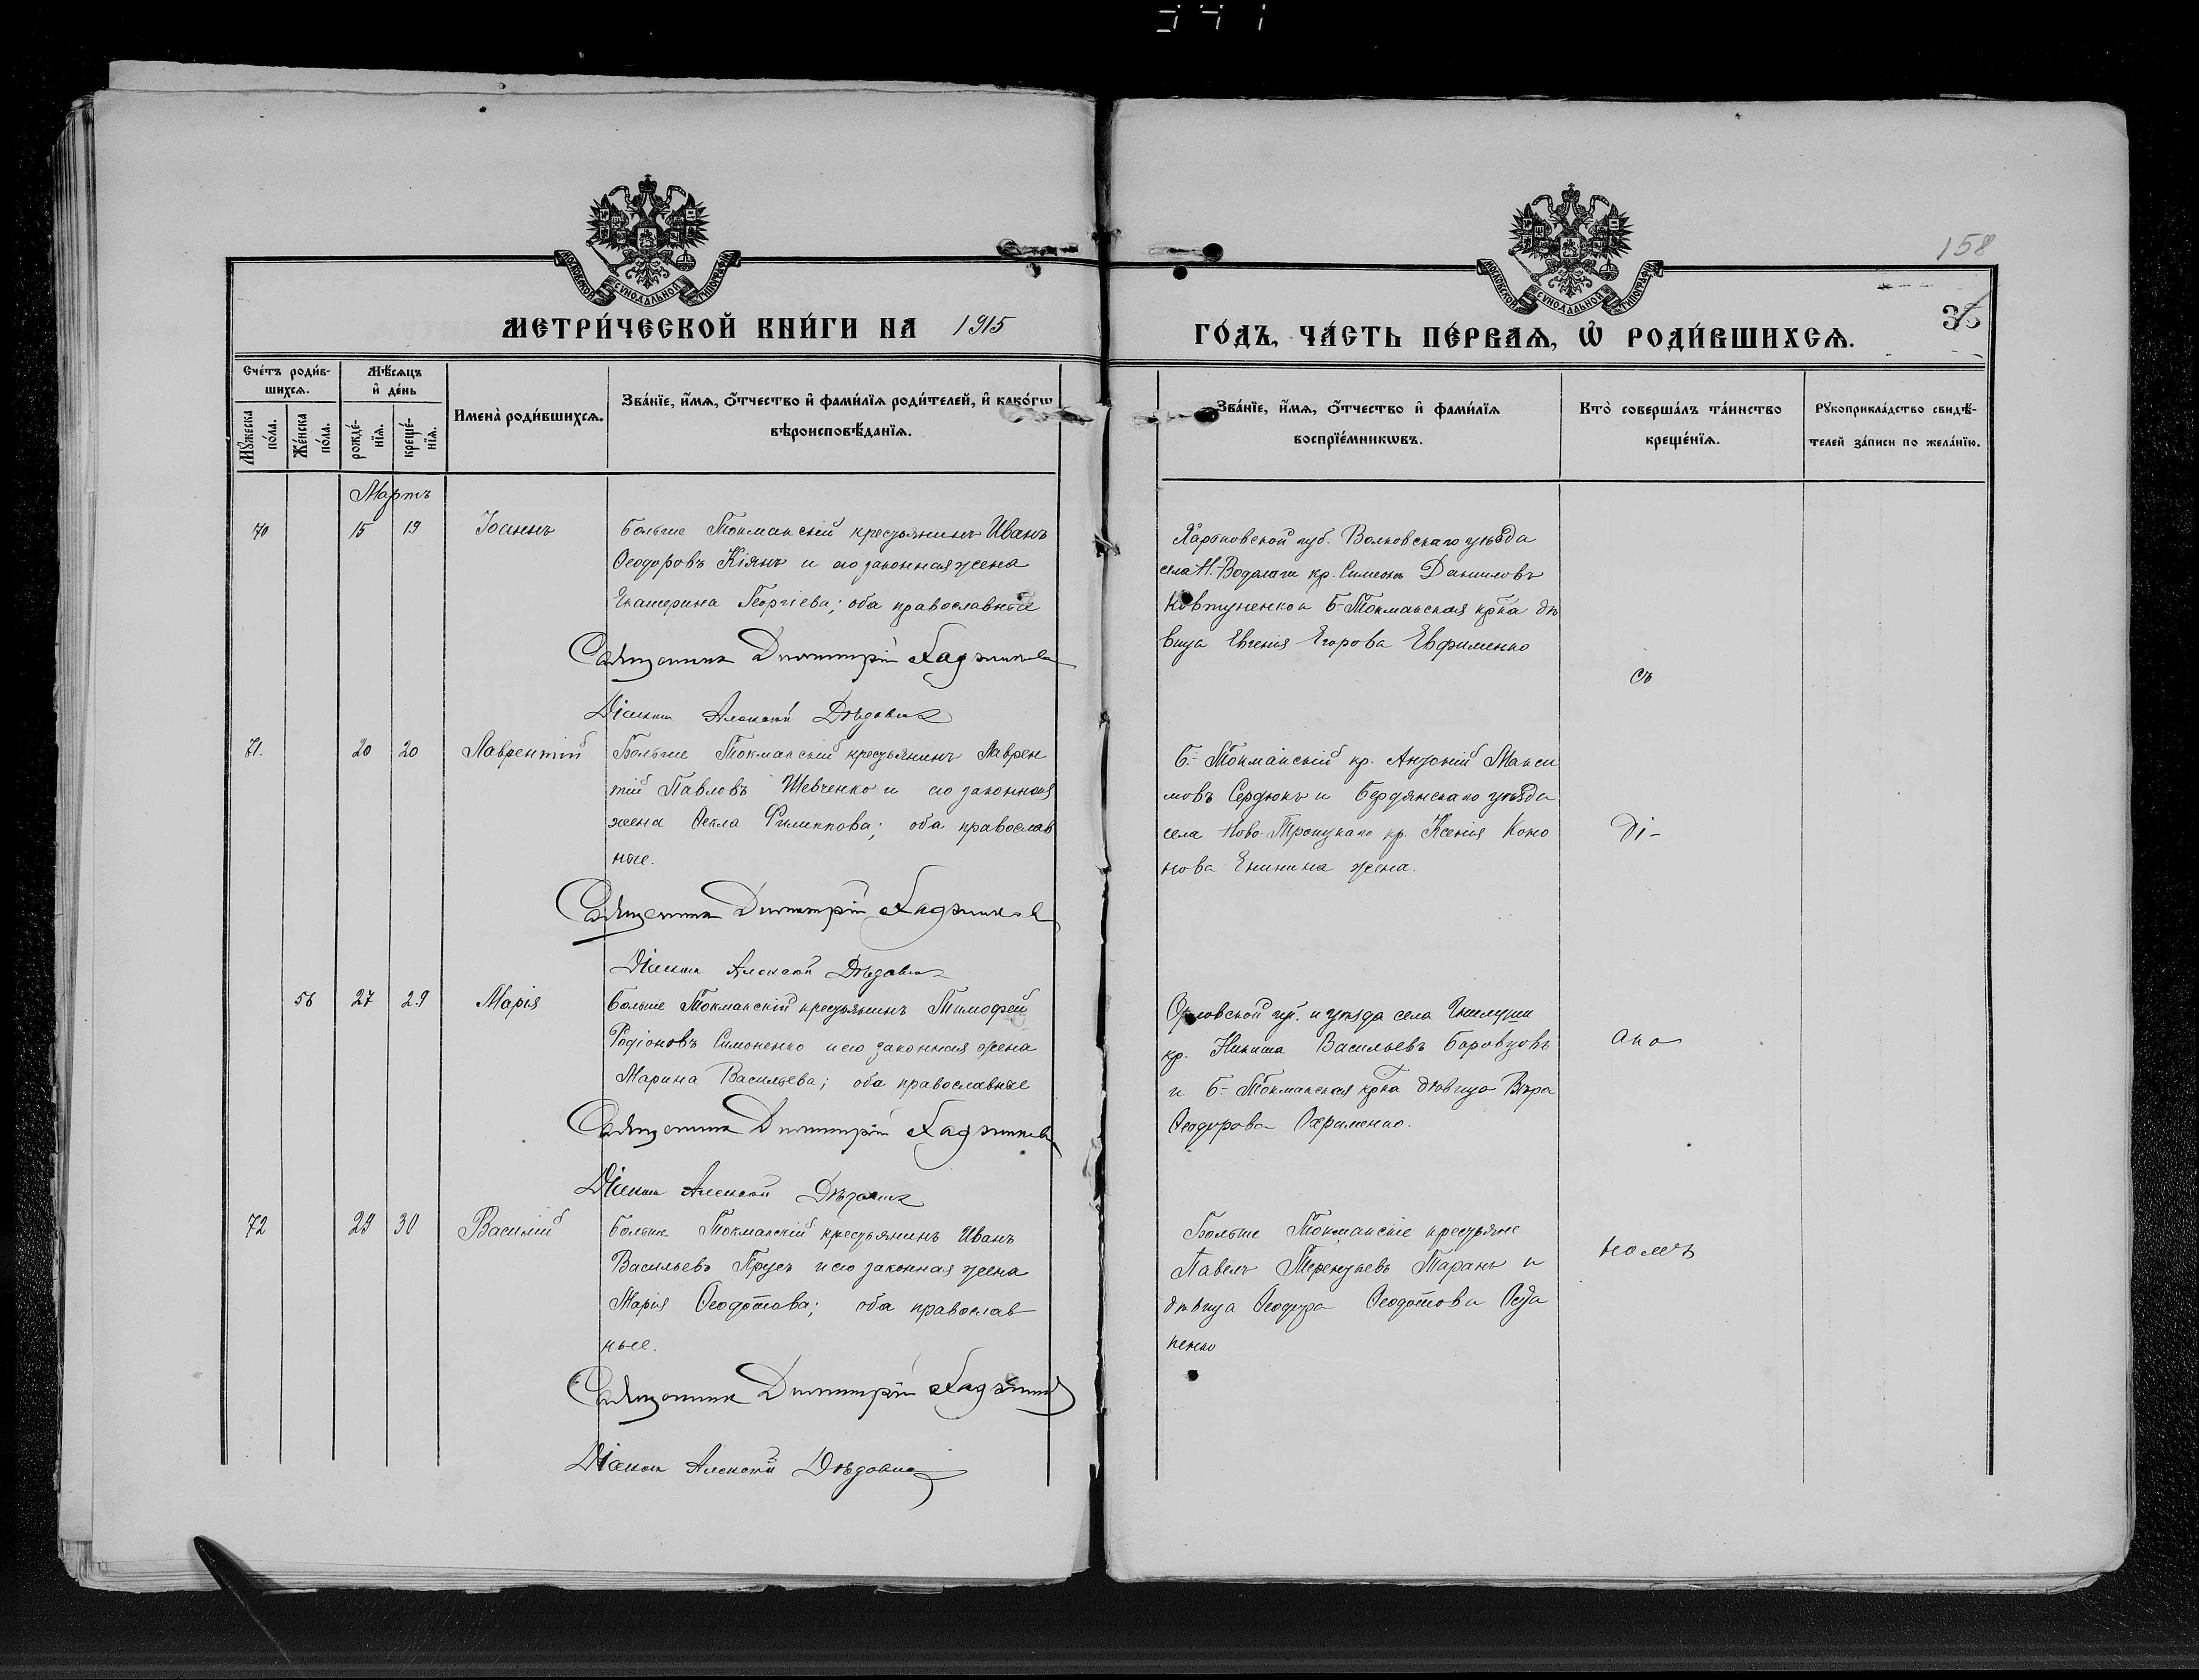 158
МЕТРИ́ЧЕСКОЙ КНИ́ГИ НА 1915
ГО́ДЪ, ЧА́СТЬ ПЕ́РВАѦ, Ѡ҆ РОДИ́ВШИХСѦ.
Сче́тъ роди́в-
шихсѧ.
Мꙋ́жеска
по́ла.
Же́нска
по́ла.
Мѣ́сѧцъ
и҆ де́нь
рожде́-
нїѧ.
креще́-
нїѧ.
Имена̀ роди́вшихсѧ.
Зва́нїе, и҆́мѧ, ѻ҆́тчество и҆ фами́лїѧ роди́телей, и҆ како́гѡ
вѣроисповѣ́данїѧ.
Зва́нїе, и҆́мѧ, ѻ҆́тчество и҆ фами́лїѧ
воспрїе́мникѡвъ.
Кто̀ соверша́лъ та́инство
креще́нїѧ.
Рꙋкоприкла́дство свидѣ́-
телей за́писи по жела́нїю.
Мартъ
70 15 19 Іоаннъ
Больше Токмакскій крестьянинъ Иванъ
Ѳеодоровъ Кіянъ и его законная жена
Екатерина Георгіева; оба православные
Священникъ Димитрій Хаджиновъ
Діаконъ Алексѣй Дѣдовичъ
Харьковской губ. Волковскаго уѣзда
села Н.-Водолаги кр. Симеонъ Даниловъ
Ковтуненко и Б-Токмакская кр-ка дѣ
вица Евгенія Егорова Евфименко
съ
71. 20 20 Лаврентій
Больше Токмакскій крестьянинъ Лаврен
тій Павловъ Шевченко и его законная
жена Ѳекла Филиппова; оба православ
ные.
Священникъ Димитрій Хаджиновъ
Діаконъ Алексѣй Дѣдовичъ
Б.- Токмакскій кр. Антоній Макси
мовъ Сердюкъ и Бердянскаго уѣзда
села Ново-Троицкаго кр. Ксенія Коно
нова Енинина жена.
Ді-
56 27 29 Марія
Больше Токмакскій крестьянинъ Тимофей
Родіоновъ Симоненко и его законная жена
Марина Васильева; оба православные
Священникъ Димитрій Хаджиновъ
Діаконъ Алексѣй Дѣдовичъ
Орловской губ. и уѣзда села
кр. Никита Васильевъ Боровцовъ
и Б- Токмакская кр-ка дѣвица Вѣра
Ѳеодорова Охрименко.
ако
72 29 30 Василій
Больше Токмакскій крестьянинъ Иванъ
Васильевъ Прусъ и его законная жена
Марія Ѳеодотова; оба православ
ные.
Священникъ Димитрій Хаджиновъ
Діаконъ Алексѣй Дѣдовичъ
Больше Токмакскіе крестьяне
Павелъ Терентьевъ Таранъ и
дѣвица Ѳеодора Ѳеодотова
ненко
номъ